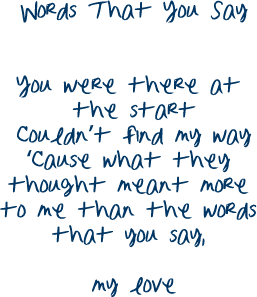 Words That You Say
you were there at
the start
Couldn't find my way
'Cause what they
thought meant more
to me than the words
that you say,
my love